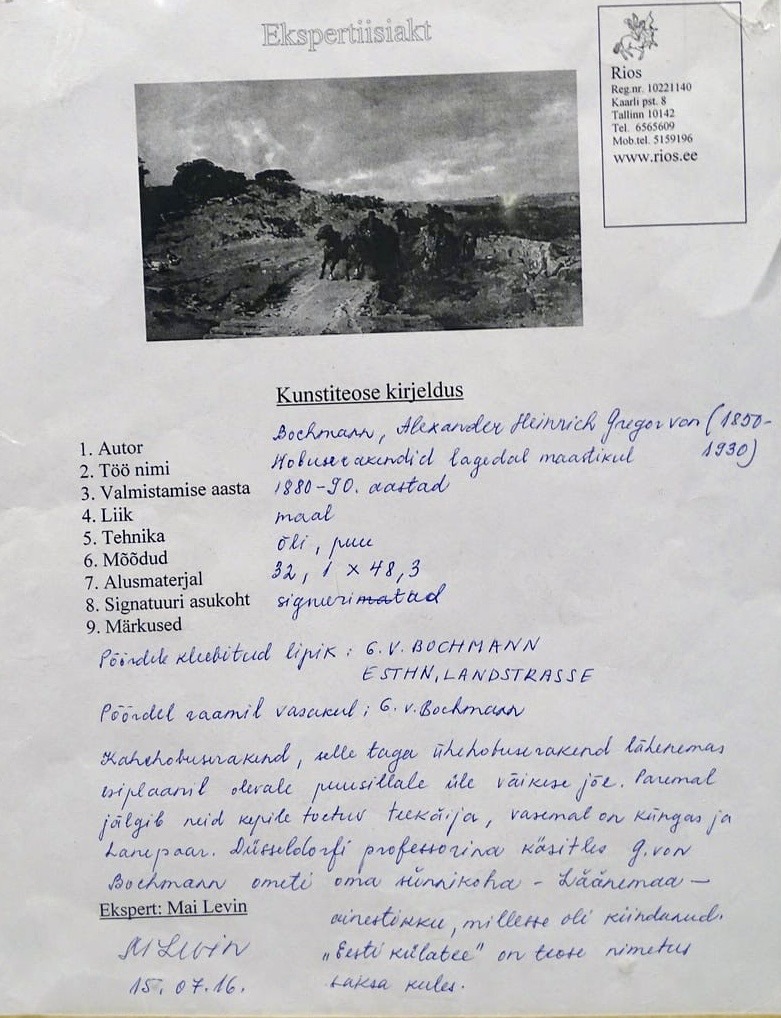 Ekspertiisiakt
Rios
Reg.nr. 10221140
Kaarli pst. 8
Tallinn 10142
Tel. 6565609
Mob.tel. 5159196
www.rios.ee
Kunstiteose kirjeldus
1. Autor
Bochmann, Alexander Heinrich Gregor von (1850-
1930)
2. Töö nimi
Hobuserakendid lagedal maastikul
3. Valmistamise aasta
1880-90. aastad
4. Liik
maal
5. Tehnika
õli, puu
6. Mõõdud
32,1 x 48,3
7. Alusmaterjal
8. Signatuuri asukoht
signeerimatud
9. Märkused
Pöördele kleebitud lipik: G. V. BOCHMANN
ESTHN. LANDSTRASSE
Pöördel raamil vasakul: G. v. Bochmann
Kahehobuserakend, selle taga ühehobuserakend lähenemas
esiplaanil olevale puusillale üle väikese jõe. Paremal
jälgib neid kepile toetuv teekäija, vasemal on küngas ja
hanepaar. Düsseldorfi professorina käsitles G. von
Bochmann ometi oma sünnikoha - Läänemaa -
Ekspert: Mai Levin
ainestikku, millesse oli kiindunud.
M Levin
„Eesti külatee" on teose nimetus
15. 07.16.
saksa keeles.